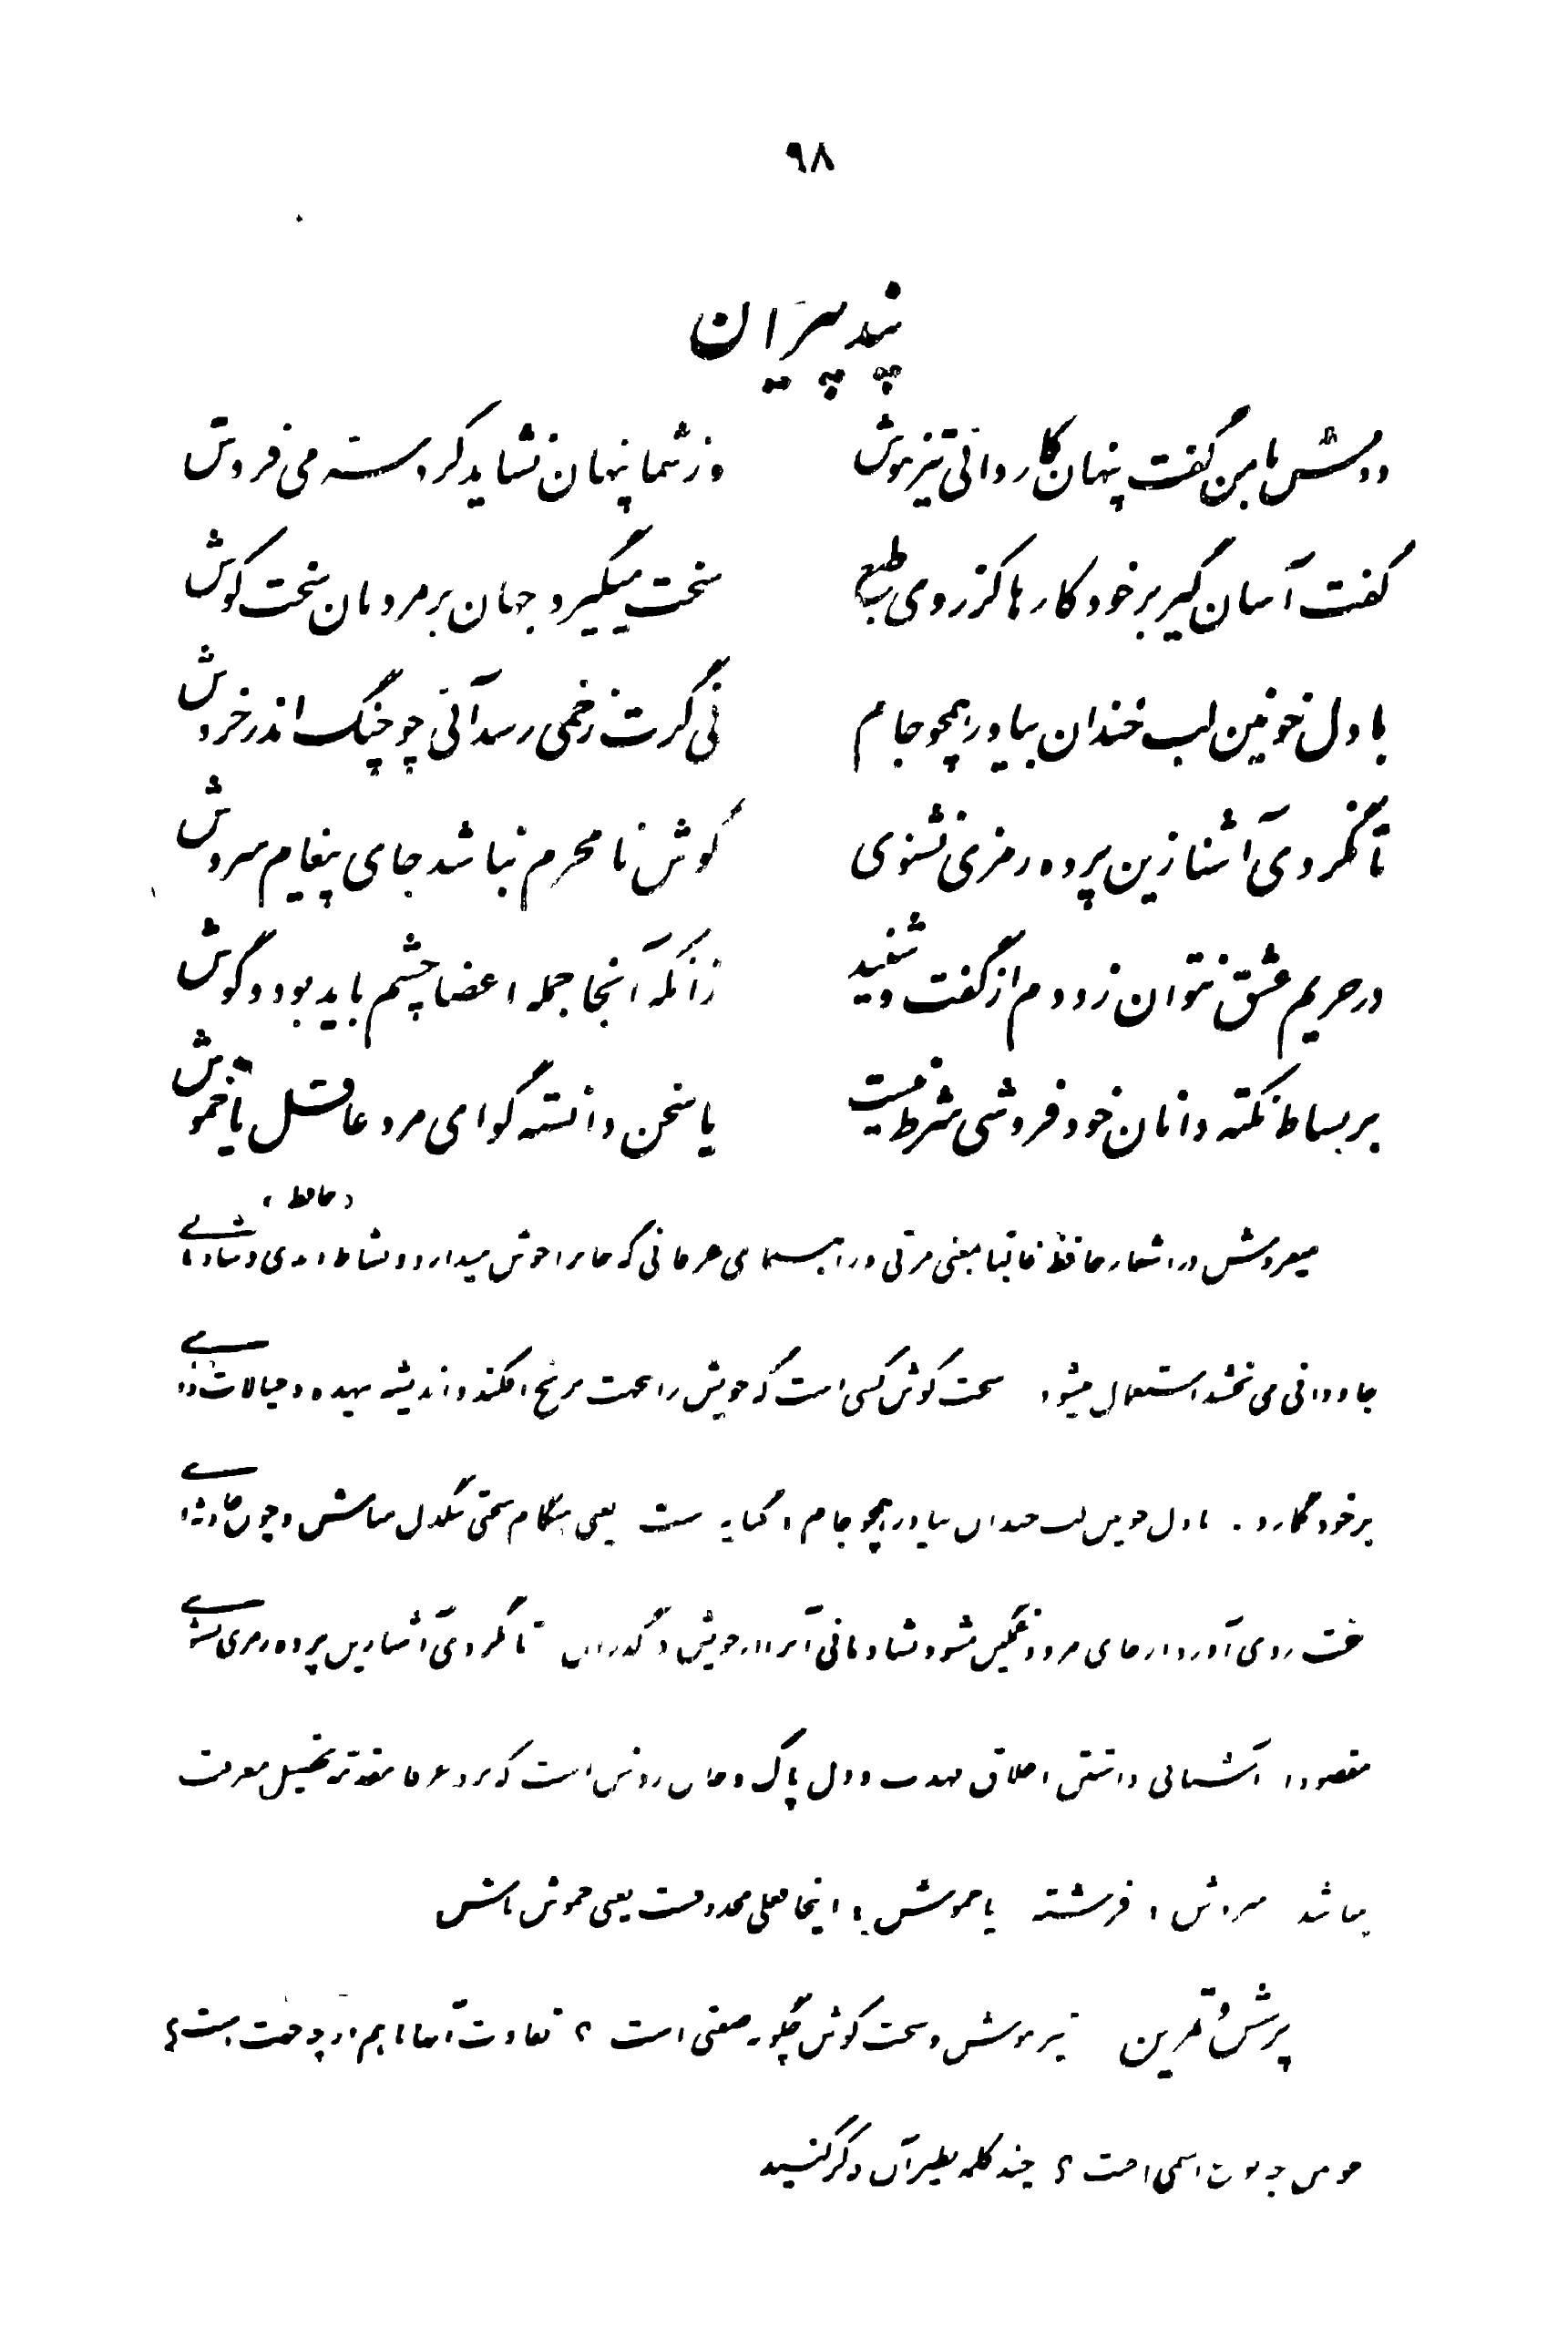 ۹۸
پند پیران
دوش با من گفت پنهان کاردانی تیزهوش وز شما پنهان نشاید کرد سر می فروش
گفت آسان گیر بر خود کارها کز روی طبع سخت میگیرد جهان بر مردمان سخت کوش
با دل خونین لب خندان بیاور همچو جام نی گرت زخمی رسد آئی چو چنگ اندر خروش
تا نگردی آشنا زین پرده رمزی نشنوی گوش نامحرم نباشد جای پیغام سروش
در حریم عشق نتوان زد دم از گفت و شنید زآنکه آنجا جمله اعضا چشم باید بود و گوش
بر بساط نکته دانان خودفروشی شرط نیست یا سخن دانسته گو ای مرد عاقل یا خموش
(حافظ)
میفروش در اشعار حافظ غالبا بمعنی مربی و راهنمای عرفانی که جانرا خوش میدارد و نشاط ابدی و شادمانی
جاودانی می بخشد استعمال میشود سخت کوش کسی است که خویش را بعمت برنج افکند و اندیشه بیهده و خیالات
بر خود گمارد . با دل خونین لب خندان بیاور همچو جام ، کنایه است یعنی هنگام سختی تنگدل مباش و چون حادثه‌ای
سخت روی آورد از جای مرو و غمگین مشو و شادمانی را از خویش دور مگردان تا نگردی آشنا زین پرده رمزی نشنوی
مقصود آشنائی داشتن اخلاق مهذب و دل پاک و جان روشن است که نزد عرفا مقدمه تحصیل معرفت
میباشد سروش ، فرشته یا خموش ، اینجا فعلی محذوفست یعنی خموش باش
پرسش و تمرین تیزهوش و سخت کوش چگونه صفتی است ؟ تفاوت آنها باهم از چه جهت است؟
خونین چه نوع اسمی است ؟ چند کلمه نظیر آن ذکر کنید